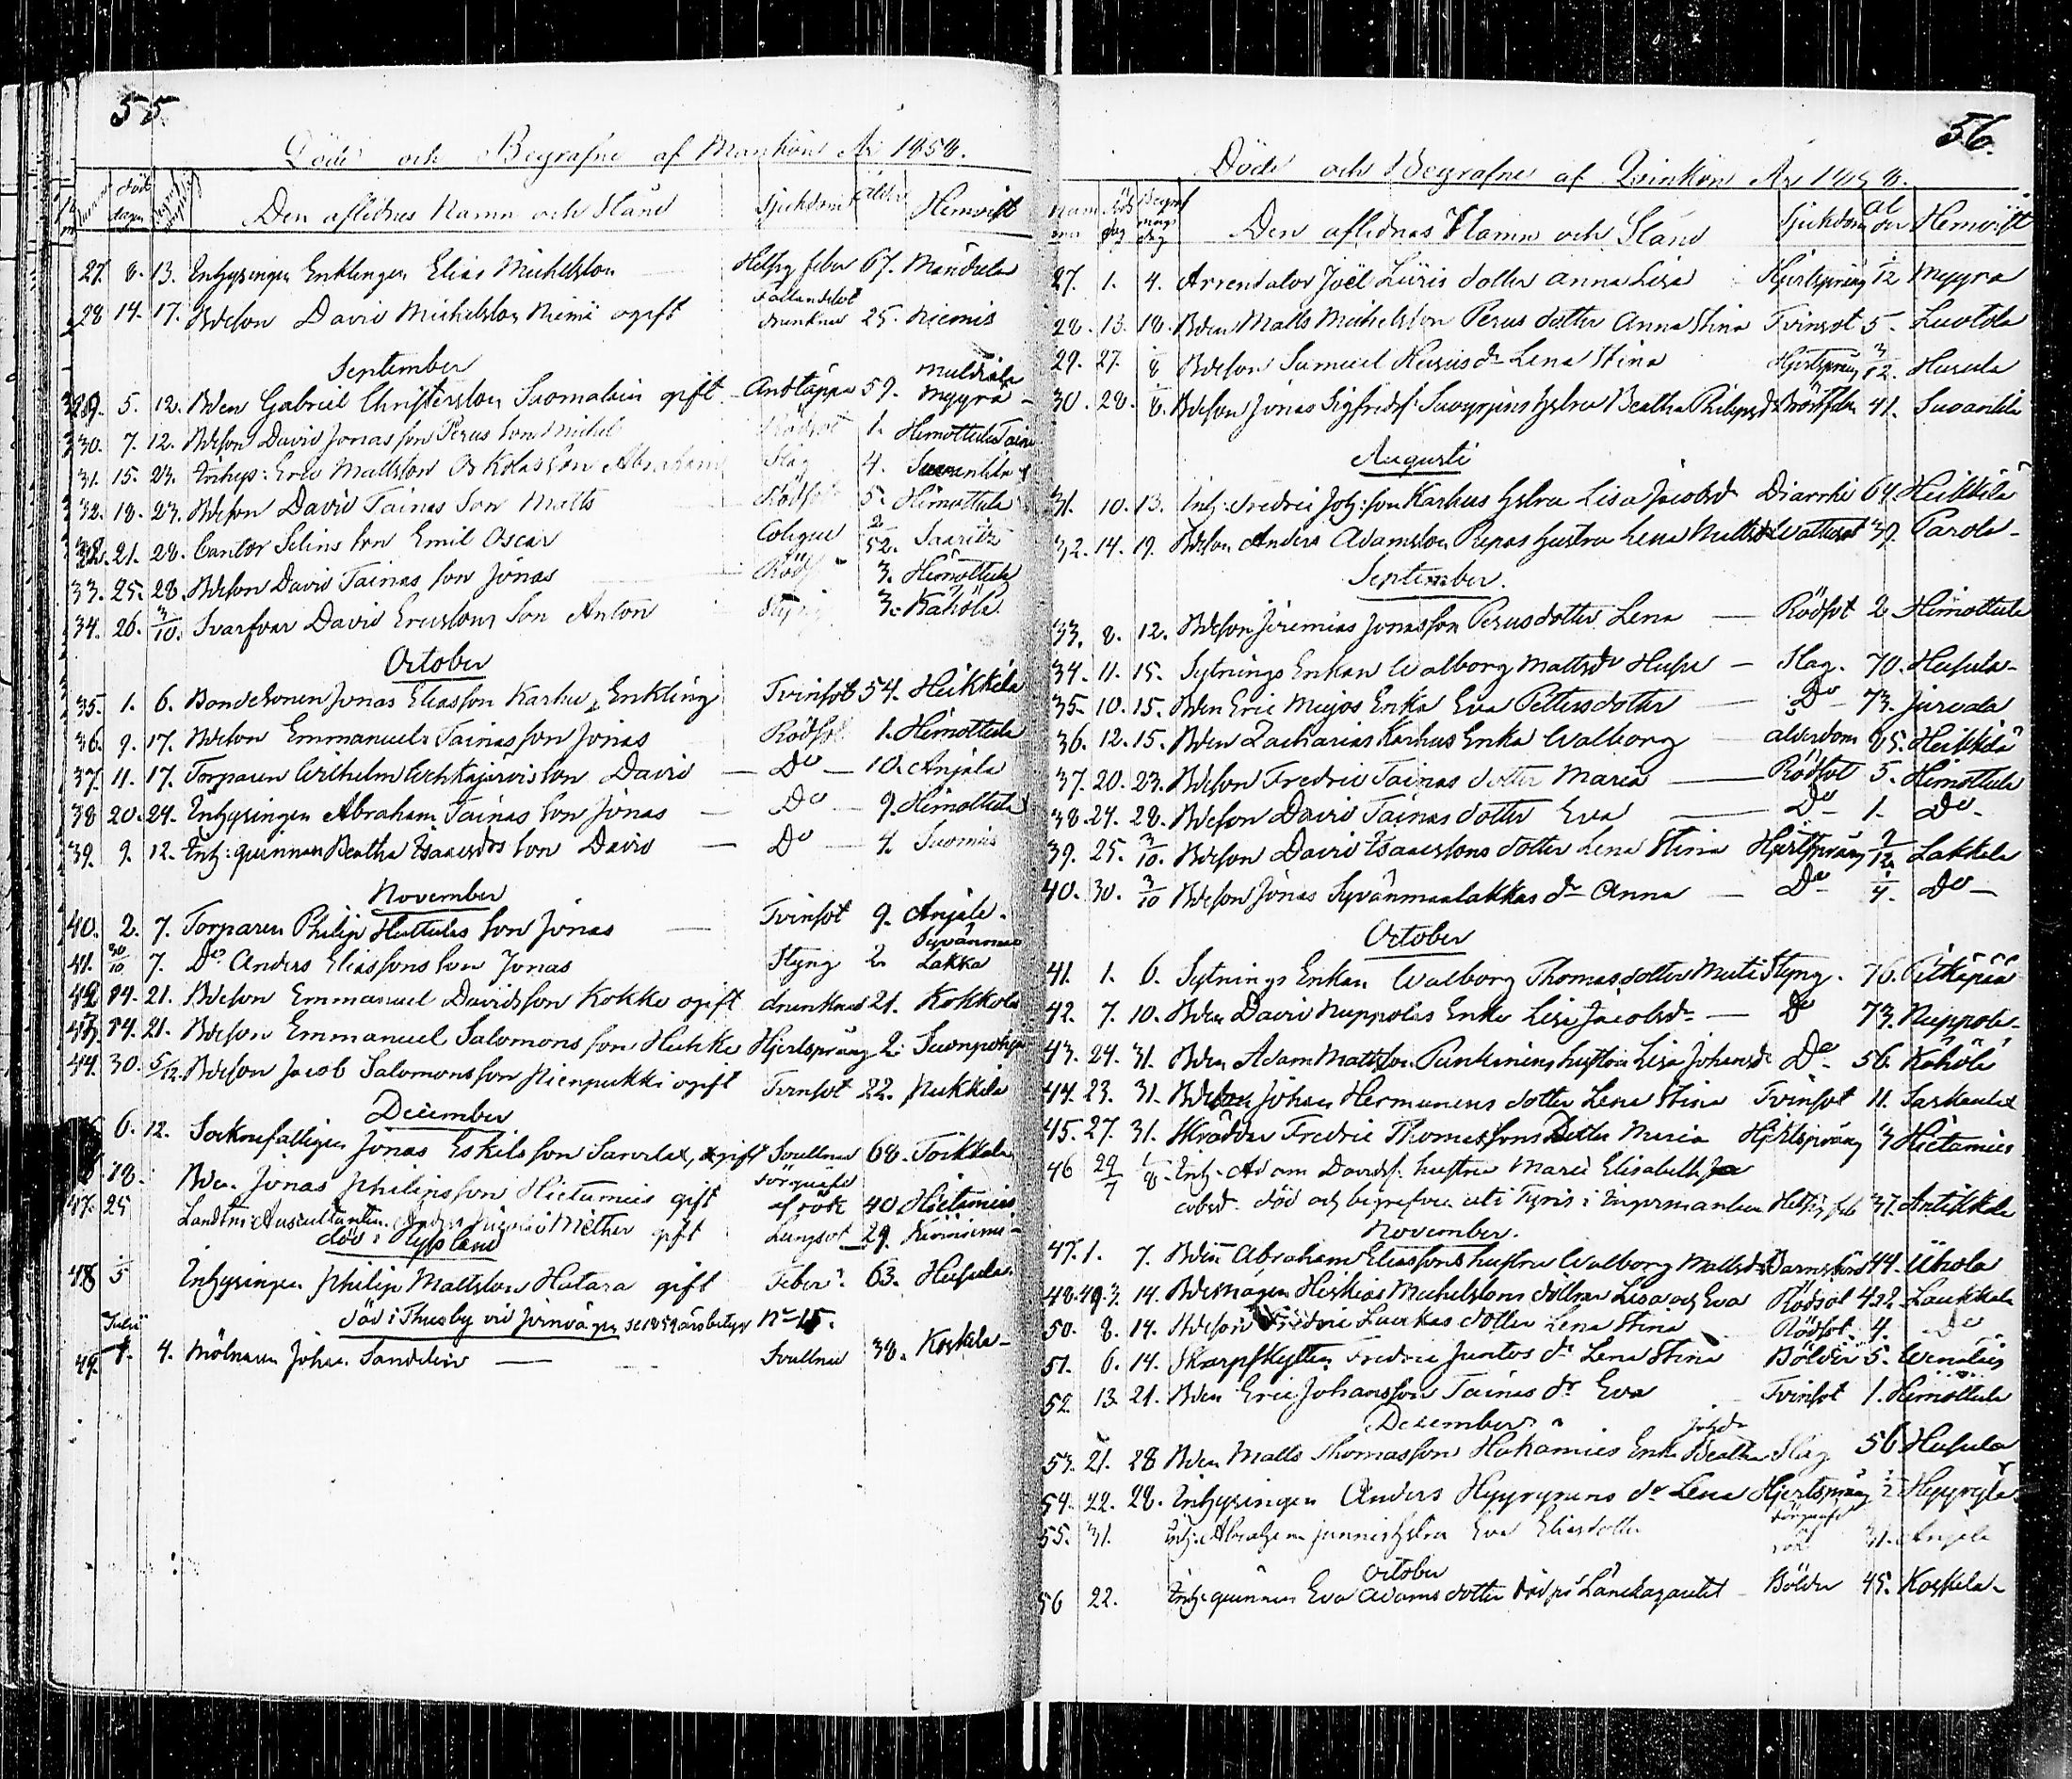 55
Döde och Begrafne af Mankön År 1858.
Nummer Död dagen Begrafnings dag Den aflidnes Namn och Stånd Sjukdom ålder Hemvist
27. 8. 13. Inhysingen Enklingen Elias Michelsson Hetsig feber 67.
28 14. 17. Bdeson David Michelsson Niemi ogift Fallandsot drunknad 25. Niemis
September
29. 5. 12. Bden Gabriel Christersson Suomalain gift Andtäppa 59. Myyrä
30. 7. 12. Bdeson David Jonasson Perus son Michel Rödsot 1. Himottula
31. 15. 23. Inhys: Eric Mattsson son Abraham Slag 4.
32. 18. 23. Bdeson David Tainas Son Matts Rödsot 5. Himottula
21. 28. Cantor Selins son Emil Oscar Colique 2/52.
33. 25. 28. Bdeson David Tainas son Jonas Röds 3. Himottula
34. 26. 3/10. Svarfvar David Ericssons Son Anton Styng 3. Kähölä
October
35. 1. 6. Bondesonen Jonas Eliasson Karhu, Enkling Tvinsot 54. Heikkilä
36. 9. 17. Bdeson Emmanuels Tainas son Jonas Rödsot 1. Himottula
37. 11. 17. Torparen Wilhelm son David — Do — 10. Anjala
38 20. 24. Inhysingen Abraham Tainas son Jonas — Do — 9. Himottula
39. 9. 12. Inh: quinnan Beatha Isaacsdrs son David — Do — 4. Suomis
November
40. 2. 7. Torparen Philip Huttulas son Jonas — Tvinsot 9. Anjala.
41. 30/10 7. Do Anders Eliassons son Jonas Styng 2. Syvänmaa Lakka
42 14. 21. Bdeson Emmanuel Davidsson Kokko ogift drunknad 21. Kokkola
43. 14. 21. Bdeson Emmanuel Salomons son Hjertsprång 2. Suonpohja
44. 30. 5/12. Bdeson Jacob Salomonsson ogift Tvinsot 22.
December
6. 12. Socknefattigen Jonas Eskilsson gift Svullnad 68. Toikkala
18. Bden Jonas Philipsson Hietamies gift Förqväfd af röök 40 Hietamies
47. 25 Landtm: Auscultanten Anders Nicolai gift Lungsot 29.
död i Nyssland
48 1/5 Inhysingen Philip Mattsson Hatara gift Feber. 63. Husula.
död i Thusby vid jernvägen se 1859 årsbetyg No 15.
Julii
49. 1. 4. Mölnaren Johan Sandelin — — Svullnad 38. Koskela-
56.
Döde och Begrafne af Qvinkön År 1858.
Num mer Död dag Begraf nings dag Den aflidnas Namn och Stånd Sjukdom Ål der Hemvist
27. 1. 4. Arrendator Joël dotter Anna Lisa Hjertsprång 1/12 Myyrä
28. 13. 18. Bden Matts Michelsson Perus dotter Anna Stina Tvinsot 5.
29. 27. 1/8 Bdeson Samuel Husus dr Lena Stina Hjertsprång 3/12. Husula
30. 28. 1/8. Bdeson Jonas Sigfredsf. hstru Beatha Philipsdr 41.
Augusti
31. 10. 13. Inh: Fredric Joh:son Karhus hstru Lisa Jacobsdr Diarrhé 64. Heikkilä
32. 14. 19. Bdeson Anders Adamsson Repos hustru Lena Mattsdr Wattusot 39. Parola-
September.
33. 8. 12. Bdeson Jeremias Jonasson Perus dotter Lena — Rödsot 2 Himottula
34. 11. 15. Sytnings Enkan Walborg Mattsdr Husu — Slag. 70. Husula-
35. 10. 15. Bden Eric Enka Eva Pettersdotter — Do 73.
36. 12. 15. Bden Zacharias Karhus Enka Walborg — ålderdom 85. Heikkilä
37. 20. 23. Bdeson Fredric Tainas dotter Maria — Rödsot 5. Himottula
38. 24. 28. Bdeson David Tainas dotter Eva — Do — 1. Do-
39. 25. 3/10. Bdeson David Isaacssons dotter Lena Stina Hjertsprång 9/12 Lakkala
40. 30. 3/10 Bdeson Jonas Syvänmaalakkas dr Anna — Do 1/4. Do —
October
41. 1. 6. Sytnings Enkan Walborg Thomasdotter Styng. 76. Pitkäpää
42. 7. 10. Bden David Nuppolas Enka Lisa Jacobsdr — Do 73. Nuppola-
43. 24. 31. Bden Adam Mattsson hustru Lisa Johansdr Do. 56. Kähölä
44. 23. 31. Bdeson Johan Hermunens dotter Lena Stina Tvinsot 11.
45. 27. 31. Skräddar Fredric Thomassons Dotter Maria Hjertsprång 3 Hietamies
46 29/7 1/8. Inh: Adam Davidsf. hustru Maria Elisabeth Ja
cobsd. död och begrafven uti Tyris i Ingermanland Hetsig feb 37. Antikkala
November.
47. 1. 7. Bden Abraham Eliassons hustru Walborg Mattsdr Barnsbörd 44. Uhola
48. 49. 3. 14. Bdemågen Heskias Michelssons döttrar Lisa och Eva Rödsot 4.22 Laukkala
50. 8. 14. Bdeson Fredric Laukas dotter Lena Stina Rödsot. 4. Do
51. 6. 14. Skarpskytten Fredric Juntos dr Lena Stina Bölder 5.
52. 13. 21. Bden Eric Johansson Tainas dr Eva Tvinsot 1. Himottula
December
53. 21. 28 Bden Matts Thomasson Hokämies Enka Beatha Johsdr Slag 56 Husula
54. 22. 28. Inhysingen Anders Hyyrynens dr Lena Hjertsprång 1/2
55. 31. Inh: Abraham hstru Eva Eliasdotter Förqväfd rök 31. Anjala
October
56 22. Inh: quinnan Eva Adamsdotter död på Länelazarettet Bölder 45. Koskela-